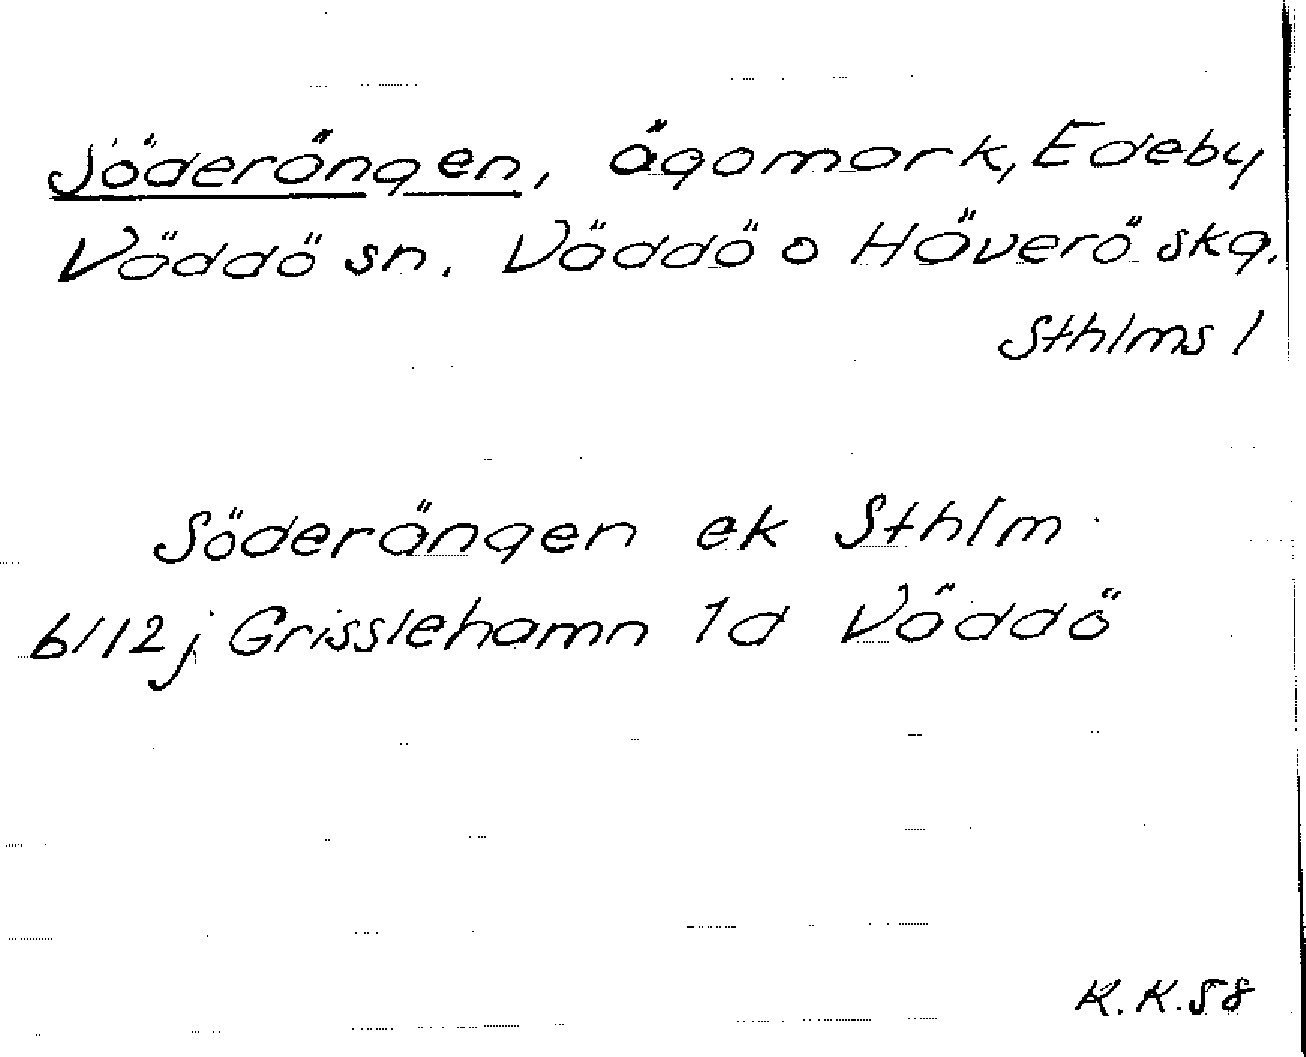 Söderängen, ägomark, Edeby
Väddö sn. Väddö o Häverö skg.
Sthlms l
Söderängen ek Sthlm
bl 12j Grisslehamn 1d Väddö
K.K.58